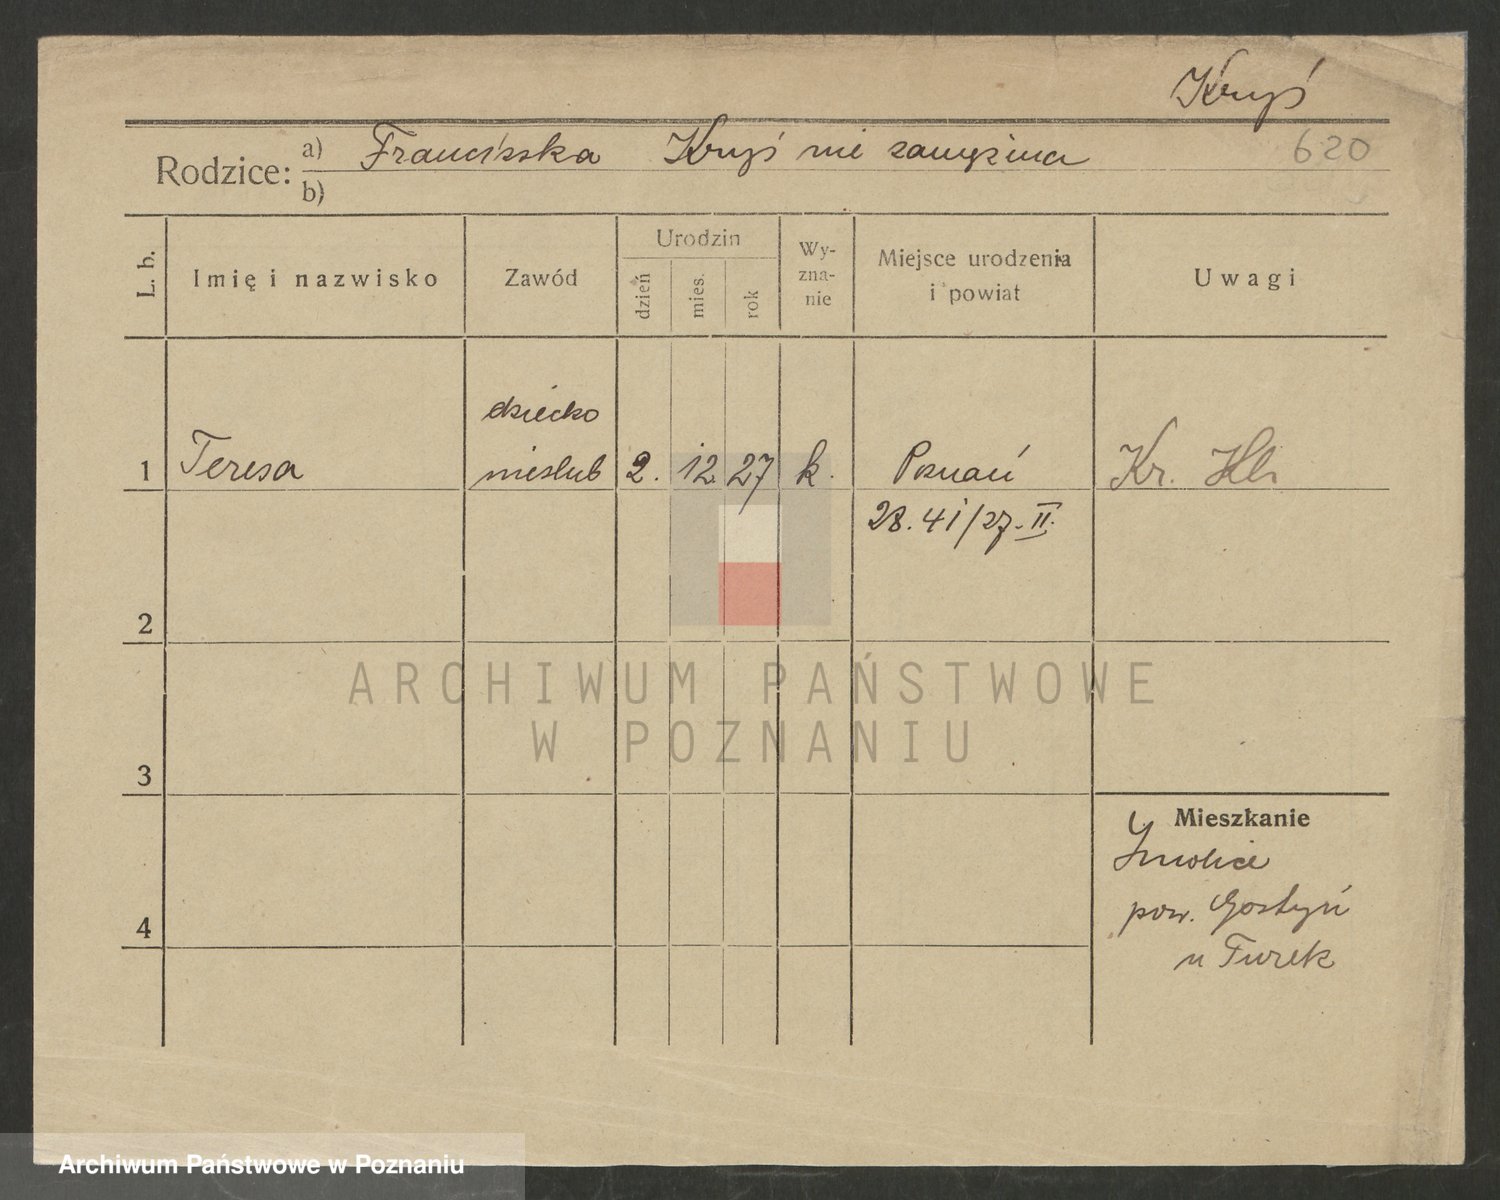 Kryś
Rodzice: a) Franciszka Kryś nie zamężna
620
b)
L. b.
Imię i nazwisko
Zawód
Urodzin
dzień
mies.
rok
Wy-
zna-
nie
Miejsce urodzenia
i powiat
Uwagi
dziecko
1 Teresa nieślub 2. 12. 27 k. Poznań Kr.
28.41/27. II.
2
3
4
Mieszkanie
Smolice
pow. Gostyń
u Turek
ARCHIWUM PAŃSTWOWE
W POZNANIU
Archiwum Państwowe w Poznaniu